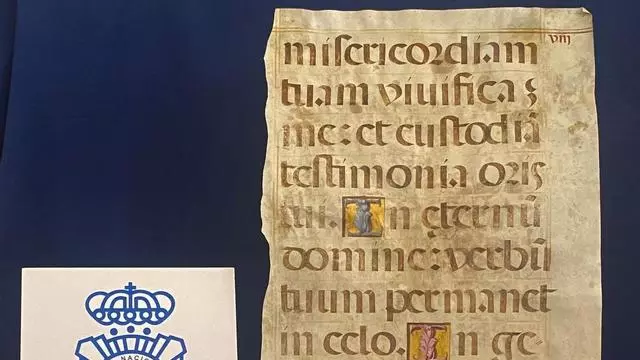 viij
misericordiam
tuam viuifica
me: et custodiā
testimonia oris
tui. In eternū
domine: verbū
tuum permanet
in celo. In ge-
NACIO